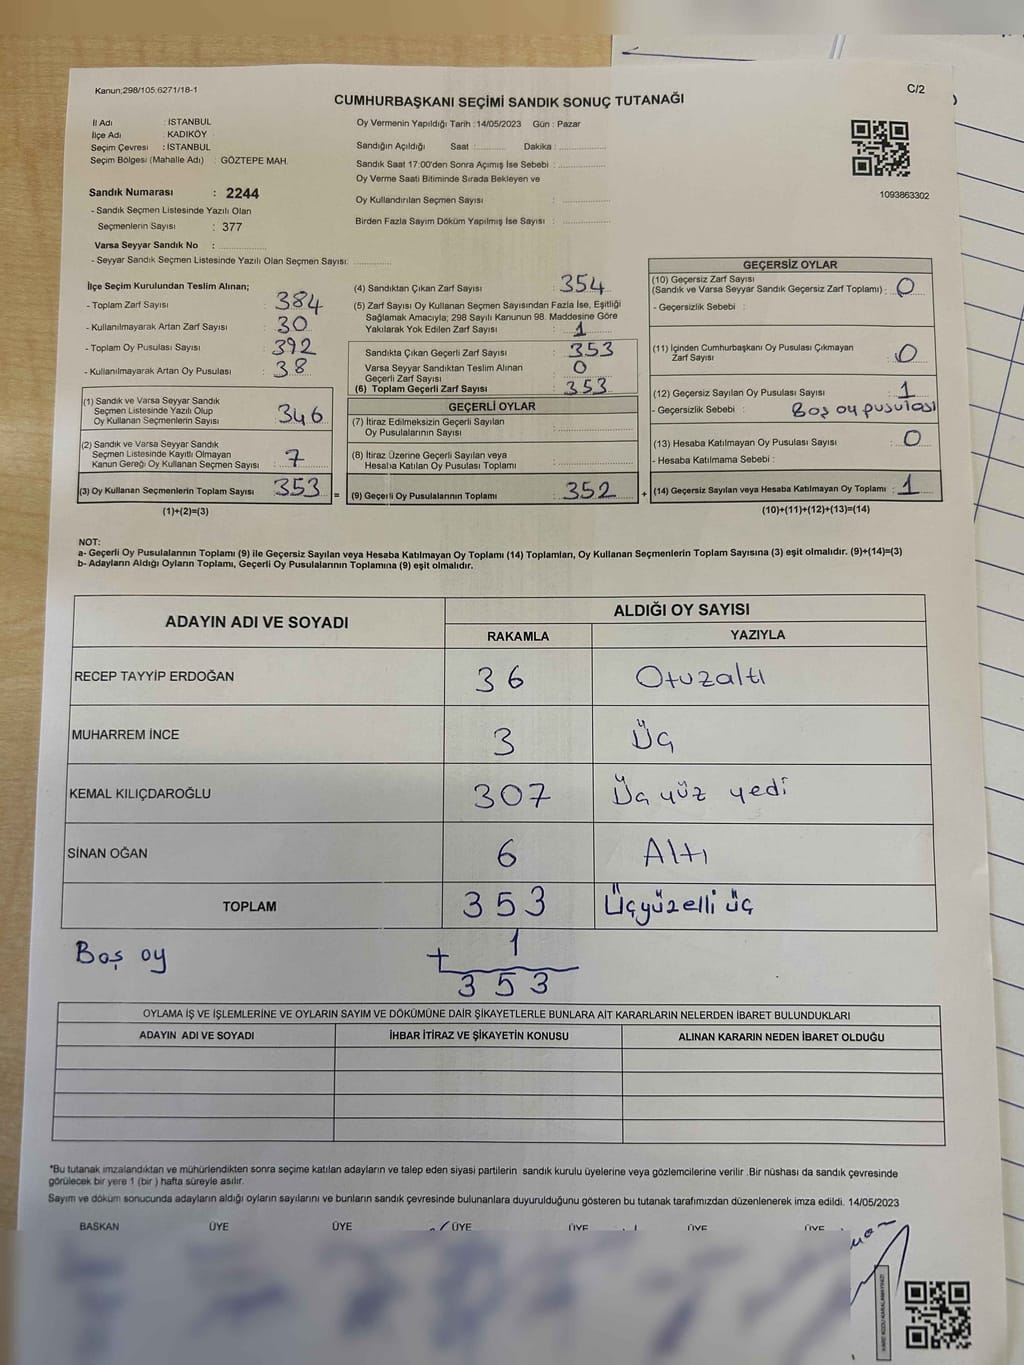 Kanun;298/105;6271/18-1
C/2
CUMHURBAŞKANI SEÇİMİ SANDIK SONUÇ TUTANAĞI
İl Adı : İSTANBUL
İlçe Adı : KADIKÖY
Seçim Çevresi : İSTANBUL
Seçim Bölgesi (Mahalle Adı) : GÖZTEPE MAH.
Sandık Numarası : 2244
- Sandık Seçmen Listesinde Yazılı Olan
Seçmenlerin Sayısı : 377
Varsa Seyyar Sandık No :
- Seyyar Sandık Seçmen Listesinde Yazılı Olan Seçmen Sayısı:
Oy Vermenin Yapıldığı Tarih :14/05/2023 Gün : Pazar
Sandığın Açıldığı Saat : Dakika :
Sandık Saat 17:00'den Sonra Açımış İse Sebebi :
Oy Verme Saati Bitiminde Sırada Bekleyen ve
Oy Kullandırılan Seçmen Sayısı :
Birden Fazla Sayım Döküm Yapılmış İse Sayısı :
1093863302
İlçe Seçim Kurulundan Teslim Alınan;
- Toplam Zarf Sayısı : 384
- Kullanılmayarak Artan Zarf Sayısı : 30
- Toplam Oy Pusulası Sayısı : 392
- Kullanılmayarak Artan Oy Pusulası : 38
(1) Sandık ve Varsa Seyyar Sandık
Seçmen Listesinde Yazılı Olup
Oy Kullanan Seçmenlerin Sayısı : 346
(2) Sandık ve Varsa Seyyar Sandık
Seçmen Listesinde Kayıtlı Olmayan
Kanun Gereği Oy Kullanan Seçmen Sayısı : 7
(3) Oy Kullanan Seçmenlerin Toplam Sayısı : 353
(1)+(2)=(3)
(4) Sandıktan Çıkan Zarf Sayısı : 354
(5) Zarf Sayısı Oy Kullanan Seçmen Sayısından Fazla İse, Eşitliği
Sağlamak Amacıyla; 298 Sayılı Kanunun 98. Maddesine Göre
Yakılarak Yok Edilen Zarf Sayısı : 1
Sandıkta Çıkan Geçerli Zarf Sayısı : 353
Varsa Seyyar Sandıktan Teslim Alınan
Geçerli Zarf Sayısı : 0
(6) Toplam Geçerli Zarf Sayısı : 353
GEÇERLİ OYLAR
(7) İtiraz Edilmeksizin Geçerli Sayılan
Oy Pusulalarının Sayısı :
(8) İtiraz Üzerine Geçerli Sayılan veya
Hesaba Katılan Oy Pusulası Toplamı :
= (9) Geçerli Oy Pusulalarının Toplamı : 352
GEÇERSİZ OYLAR
(10) Geçersiz Zarf Sayısı
(Sandık ve Varsa Seyyar Sandık Geçersiz Zarf Toplamı) : 0
- Geçersizlik Sebebi :
(11) İçinden Cumhurbaşkanı Oy Pusulası Çıkmayan
Zarf Sayısı : 0
(12) Geçersiz Sayılan Oy Pusulası Sayısı : 1
- Geçersizlik Sebebi : Boş oy pusulası
(13) Hesaba Katılmayan Oy Pusulası Sayısı : 0
- Hesaba Katılmama Sebebi :
+ (14) Geçersiz Sayılan veya Hesaba Katılmayan Oy Toplamı : 1
(10)+(11)+(12)+(13)=(14)
NOT:
a- Geçerli Oy Pusulalarının Toplamı (9) ile Geçersiz Sayılan veya Hesaba Katılmayan Oy Toplamı (14) Toplamları, Oy Kullanan Seçmenlerin Toplam Sayısına (3) eşit olmalıdır. (9)+(14)=(3)
b- Adayların Aldığı Oyların Toplamı, Geçerli Oy Pusulalarının Toplamına (9) eşit olmalıdır.
ADAYIN ADI VE SOYADI
ALDIĞI OY SAYISI
RAKAMLA YAZIYLA
RECEP TAYYİP ERDOĞAN 36 Otuzaltı
MUHARREM İNCE 3 Üç
KEMAL KILIÇDAROĞLU 307 Üç yüz yedi
SİNAN OĞAN 6 Altı
TOPLAM 353 Üçyüzelli üç
Boş oy + 1
353
OYLAMA İŞ VE İŞLEMLERİNE VE OYLARIN SAYIM VE DÖKÜMÜNE DAİR ŞİKAYETLERLE BUNLARA AİT KARARLARIN NELERDEN İBARET BULUNDUKLARI
ADAYIN ADI VE SOYADI İHBAR İTİRAZ VE ŞİKAYETİN KONUSU ALINAN KARARIN NEDEN İBARET OLDUĞU
*Bu tutanak imzalandıktan ve mühürlendikten sonra seçime katılan adayların ve talep eden siyasi partilerin sandık kurulu üyelerine veya gözlemcilerine verilir .Bir nüshası da sandık çevresinde
görülecek bir yere 1 (bir ) hafta süreyle asılır.
Sayım ve döküm sonucunda adayların aldığı oyların sayılarını ve bunların sandık çevresinde bulunanlara duyurulduğunu gösteren bu tutanak tarafımızdan düzenlenerek imza edildi. 14/05/2023
BAŞKAN ÜYE ÜYE ÜYE ÜYE ÜYE ÜYE